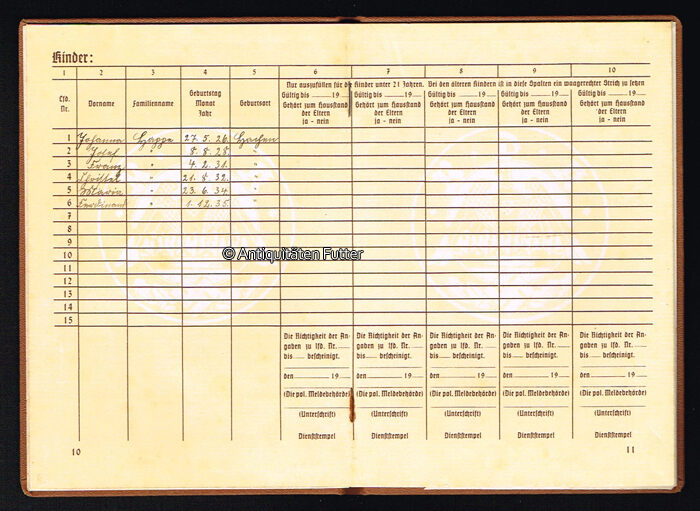 Kinder:
1 2 3 4 5 6 7 8 9 10
Lfd. Nr. Vorname Familienname Geburtstag Monat Jahr Geburtsort
Nur auszufüllen für die Kinder unter 21 Jahren. Bei den älteren Kindern ist in diese Spalten ein waagerechter Strich zu setzen
Gültig bis ........ 19 Gültig bis ........ 19 Gültig bis ........ 19 Gültig bis ........ 19 Gültig bis ........ 19
Gehört zum Hausstand Gehört zum Hausstand Gehört zum Hausstand Gehört zum Hausstand Gehört zum Hausstand
der Eltern der Eltern der Eltern der Eltern der Eltern
ja - nein ja - nein ja - nein ja - nein ja - nein
1 Johanna Happe 27. 5. 26. Hachen
2 Josef " 8. 8. 28. "
3 Franz " 4. 2. 31. "
4 " 21. 8. 32. "
5 Maria " 23. 6. 34. "
6 Ferdinand " 1. 12. 35. "
7
8
9
10
11
12
13
14
15
© Antiquitäten Futter
Die Richtigkeit der An- Die Richtigkeit der An- Die Richtigkeit der An- Die Richtigkeit der An- Die Richtigkeit der An-
gaben zu lfd. Nr. gaben zu lfd. Nr. gaben zu lfd. Nr. gaben zu lfd. Nr. gaben zu lfd. Nr.
bis ..... bescheinigt. bis ..... bescheinigt. bis ..... bescheinigt. bis ..... bescheinigt. bis ..... bescheinigt.
den ........ 19 den ........ 19 den ........ 19 den ........ 19 den ........ 19
(Die pol. Meldebehörde) (Die pol. Meldebehörde) (Die pol. Meldebehörde) (Die pol. Meldebehörde) (Die pol. Meldebehörde)
(Unterschrift) (Unterschrift) (Unterschrift) (Unterschrift) (Unterschrift)
Dienststempel Dienststempel Dienststempel Dienststempel Dienststempel
10 11